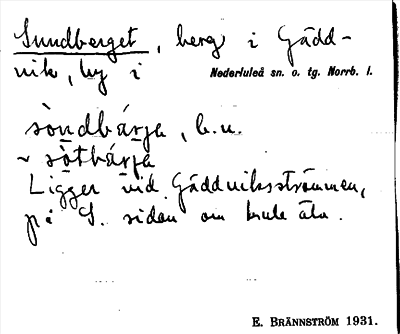 Sundberget, berg i Gädd-
vik, by i Nederluleå sn. o. tg. Norrb. l.
sòndbárja, b.u.
~ sòtbárja
Ligger vid Gäddviksströmmen,
på S. sidan om Lule älv.
E. BRÄNNSTRÖM 1931.